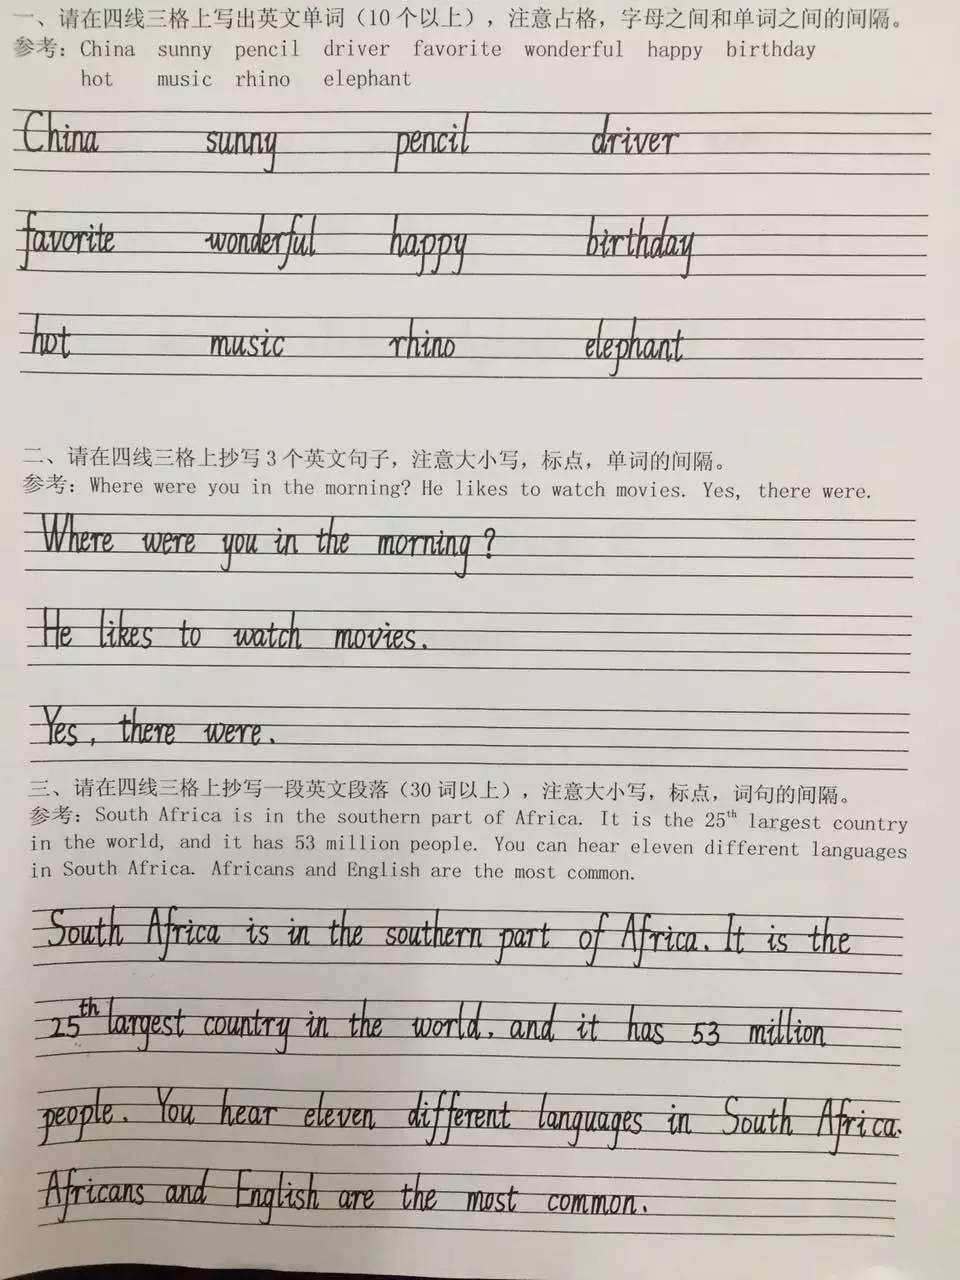 一、请在四线三格上写出英文单词（10个以上），注意占格，字母之间和单词之间的间隔。
参考：China sunny pencil driver favorite wonderful happy birthday
hot music rhino elephant
China sunny pencil driver
favorite wonderful happy birthday
hot music rhino elephant
二、请在四线三格上抄写3个英文句子，注意大小写，标点，单词的间隔。
参考：Where were you in the morning? He likes to watch movies. Yes, there were.
Where were you in the morning?
He likes to watch movies.
Yes, there were.
三、请在四线三格上抄写一段英文段落（30词以上），注意大小写，标点，词句的间隔。
参考：South Africa is in the southern part of Africa. It is the 25th largest country
in the world, and it has 53 million people. You can hear eleven different languages
in South Africa. Africans and English are the most common.
South Africa is in the southern part of Africa. It is the
25th largest country in the world, and it has 53 million
people. You hear eleven different languages in South Africa.
Africans and English are the most common.